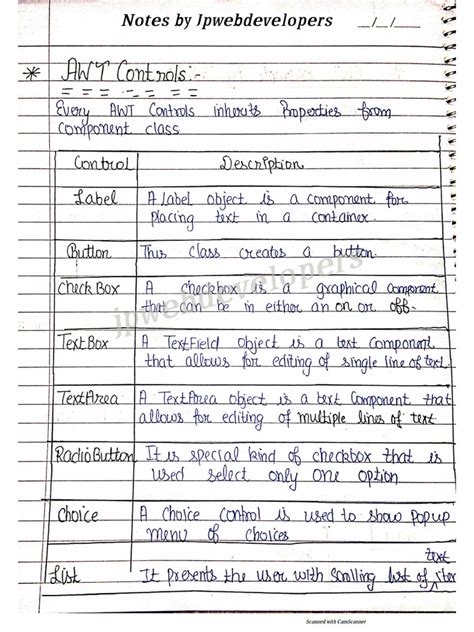 Notes by Jpwebdevelopers __/__/__
* AWT Controls:-
Every AWT Controls inherits Properties from
component class
Control Description
Label A Label object is a component for
placing text in a container.
Button This class creates a button.
Check Box A checkbox is a graphical component
that can be in either an on or off.
TextBox A TextField object is a text component
that allows for editing of single line of text.
TextArea A TextArea object is a text component that
allows for editing of multiple lines of text
RadioButton It is special kind of checkbox that is
used select only one option
Choice A Choice control is used to show popup
menu of choices
text
List It presents the user with scrolling list of ^ item
jpwebdevelopers
Scanned with CamScanner